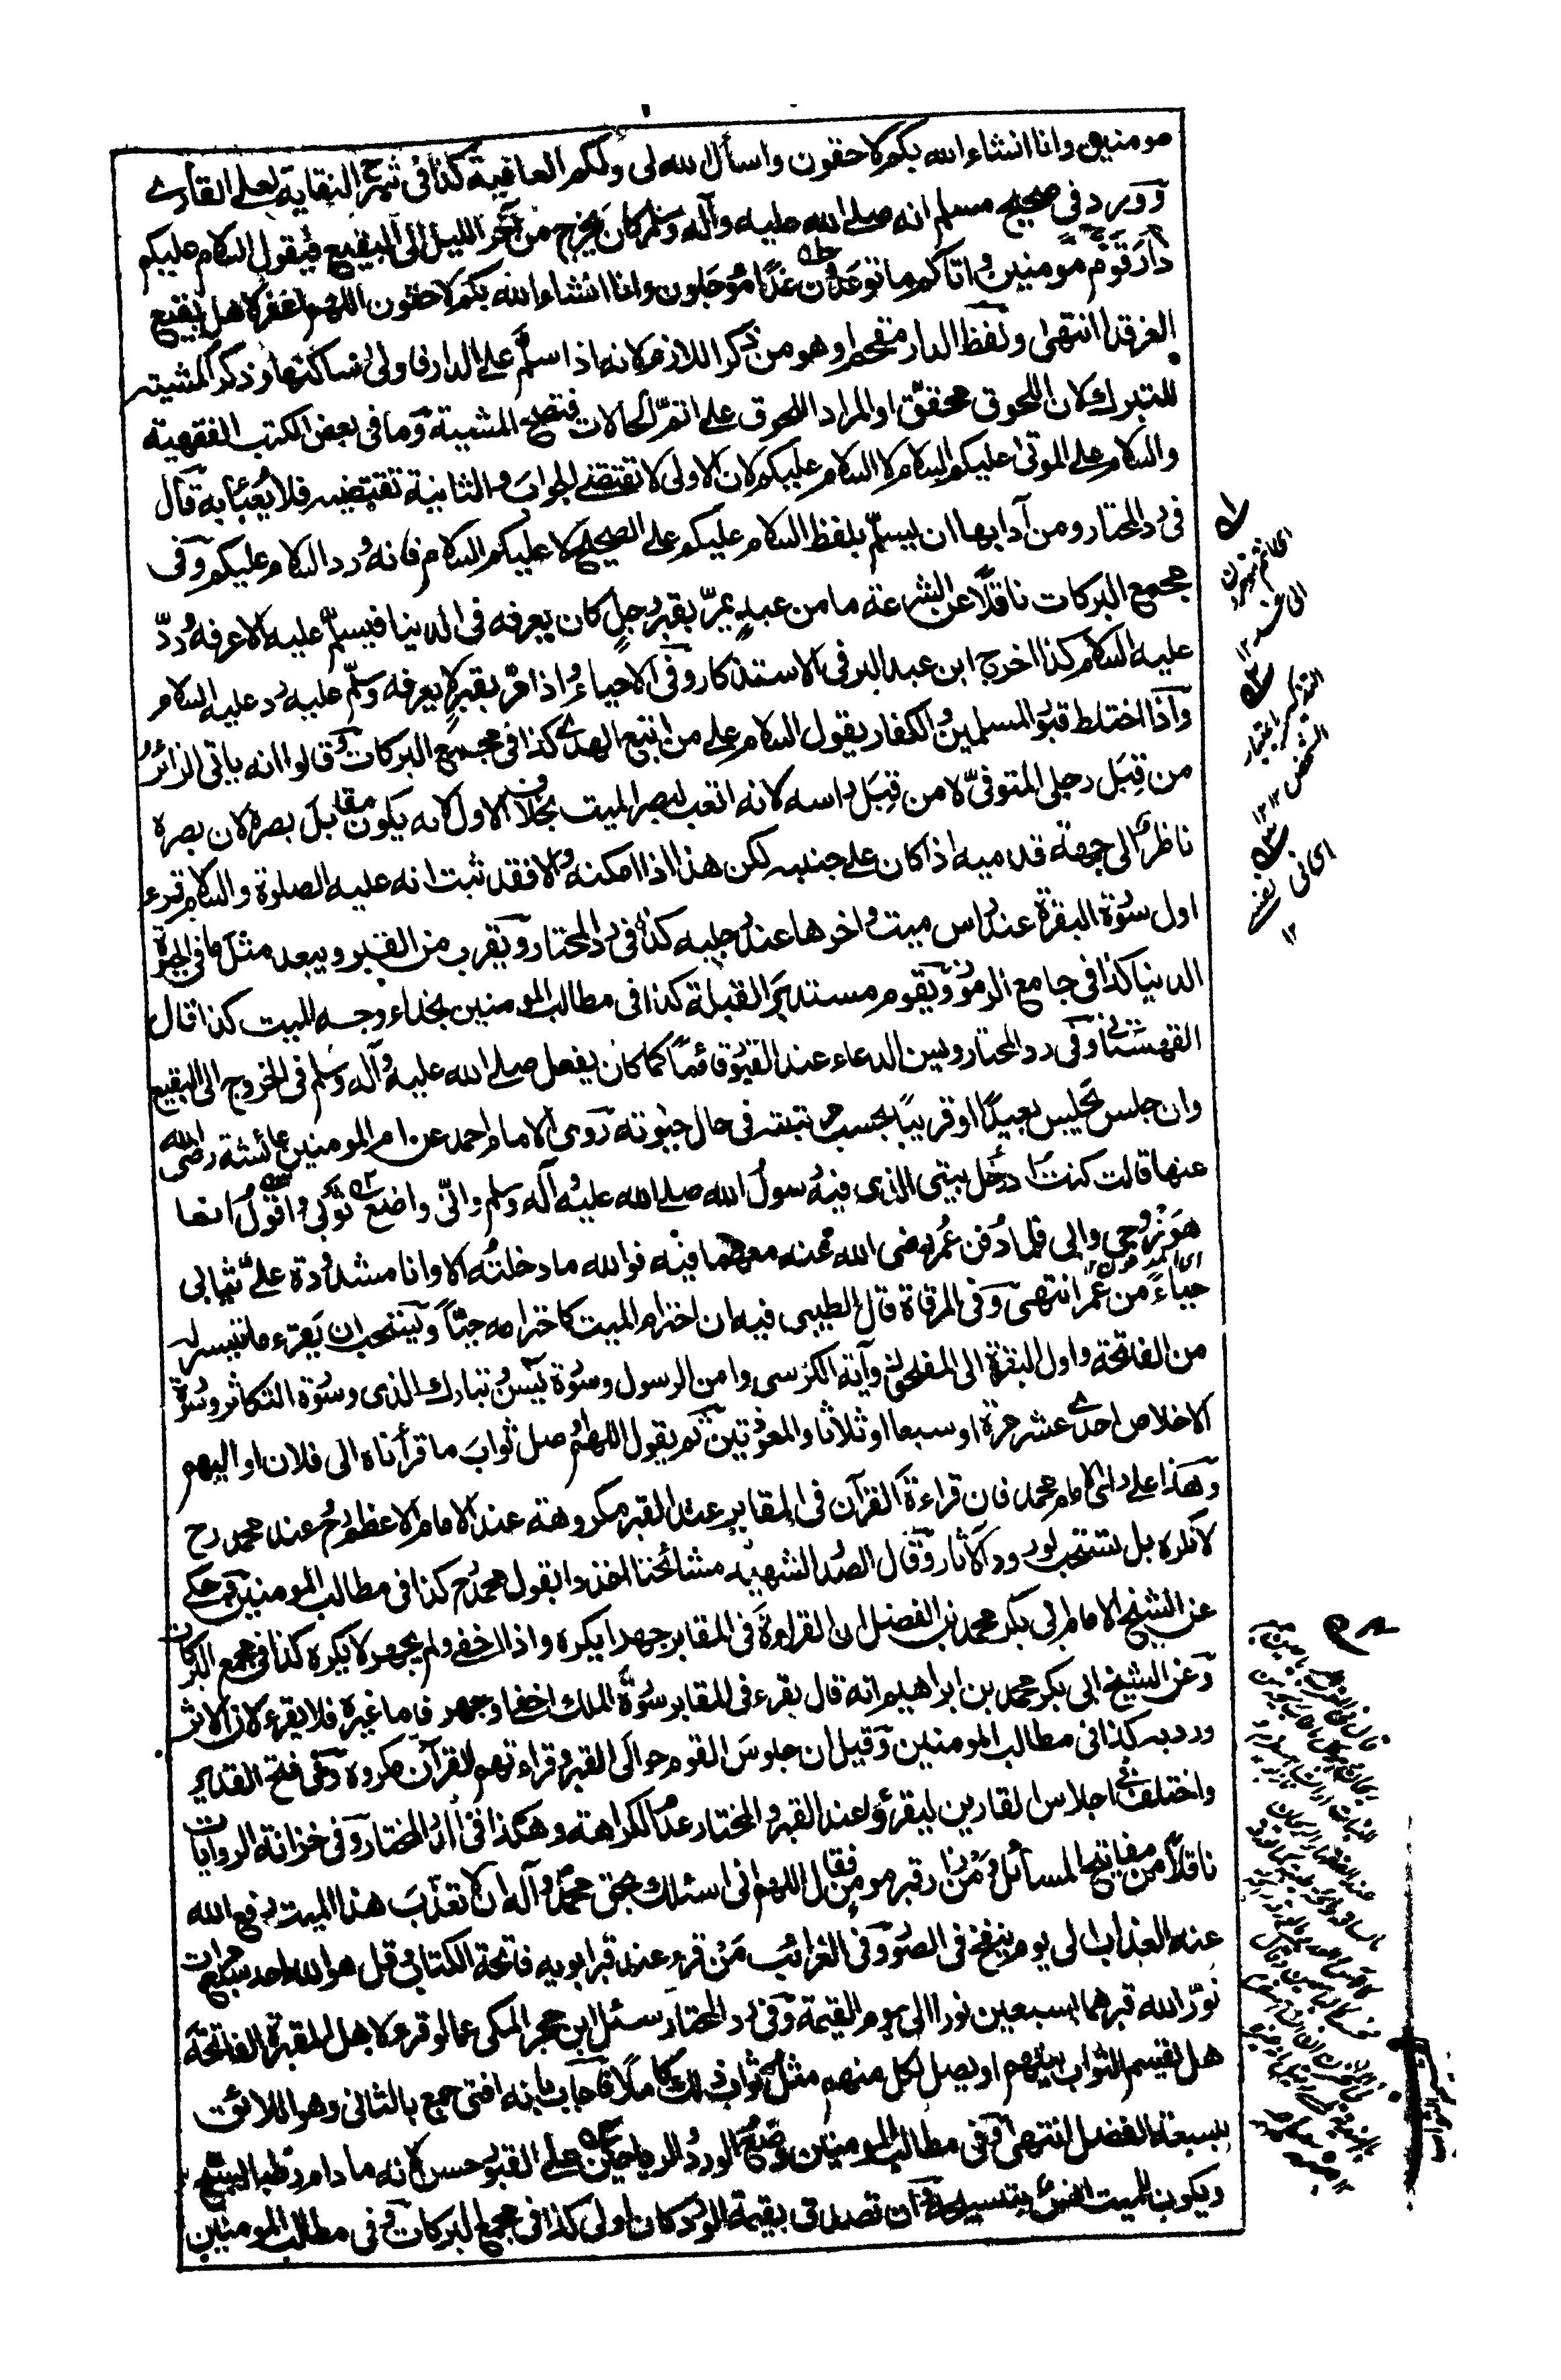 مومنين وانا انشاء الله بكم لاحقون واسأل الله لى ولكم العافية كذا فى شرح النقاية لعلى القارى
وورد فى صحيح مسلم انه صلى الله عليه وآله وسلم كان يخرج من آخر الليل الى البقيع فيقول السلام عليكم
دار قوم مومنين واتاكم ما توعدون غدًا مؤجلون وانا انشاء الله بكم لاحقون اللهم اغفر لاهل بقيع
الغرقد انتهى ولفظ الدار مقحم او هو من ذكر اللازم لانه اذا سلّم على الدار فاولى لساكنها وذكر المشية
للتبرك لان اللحوق محقق او المراد اللحوق على اتمّ الحالات فتصح المشية وما فى بعض الكتب الفقهية
والسلام على الموتى عليكم السلام لا السلام عليكم لان الاولى لا تقتضى الجواب والثانية تقتضيه فلا يعبأ به قال
فى رد المحتار ومن آدابها ان يسلّم بلفظ السلام عليكم على الصحيح لا عليكم السلام فانه ورد السلام عليكم وفى
مجمع البركات ناقلًا عن الشرعة ما من عبدٍ يمرّ بقبر رجلٍ كان يعرفه فى الدنيا فيسلّم عليه الا عرفه وردّ
عليه السلام كذا اخرج ابن عبد البر فى الاستذكار وفى الاحياء واذا مرّ بقبر لا يعرفه وسلّم عليه رد عليه السلام
واذا اختلط قبور المسلمين والكفار يقول السلام على من اتبع الهدى كذا فى مجمع البركات وقالوا انه ياتى الزائر
من قِبَل رجلى المتوفّى لا من قِبَل راسه لانه اتعب لبصر الميت بخلاف الاول لانه يكون مقابل بصره لان بصره
ناظر الى جهة قدميه اذا كان على جنبه لكن هذا اذا امكنه والا فقد ثبت انه عليه الصلوة والسلام قرء
اول سورة البقرة عند راس ميت واخرها عند رجليه كذا فى رد المحتار ويقرب من القبر ويبعد مثل ما فى الحيوة
الدنيا كذا فى جامع الرموز ويقوم مستدبر القبلة كذا فى مطالب المومنين بحذاء وجه الميت كذا قال
القهستانى وفى رد المحتار ويسن الدعاء عند القبور قائمًا كما كان يفعل صلى الله عليه وآله وسلم فى الخروج الى البقيع
وان جلس يجلس بعيدًا او قريبًا بحسب مرتبته فى حال حيوته روى الامام احمد عن ام المومنين عائشة رضى الله
عنها قالت كنت ادخل بيتى الذى فيه رسول الله صلى الله عليه وآله وسلم وانّى واضع ثوبى واقول انما
هو زوجى وابى فلما دفن عمر رضى الله عنه معهما فيه فوالله ما دخلته الا وانا مشدودة علىّ ثيابى
حياءً من عمر انتهى وفى المرقاة قال الطيبى فيه ان احترام الميت كاحترامه حيًّا ويستحب ان يقرء ما تيسر له
من الفاتحة واول البقرة الى المفلحون وآية الكرسى وامن الرسول وسورة يٓس وتبارك الذى وسورة التكاثر وسورة
الاخلاص احدى عشر مرة او سبعا او ثلاثا والمعوذتين ثم يقول اللهم صل ثواب ما قرأناه الى فلان او اليهم
وهذا على راى الامام محمد فان قراءة القرآن فى المقابر عند القبر مكروهة عند الامام الاعظم رح عند محمد رح
لا تكره بل تستحب لورود الآثار وقال الصدر الشهيد مشائخنا اخذوا بقول محمد رح كذا فى مطالب المومنين وحكى
عن الشيخ الامام ابى بكر محمد بن الفضل ان القراءة فى المقابر جهرا يكره واذا اخفى ولم يجهر لا يكره كذا فى مجمع البركات
وعن الشيخ ابى بكر محمد بن ابراهيم انه قال يقرء فى المقابر سورة الملك اخفا وجهر فاما غيره فلا يقرء لان الاثر
ورد به كذا فى مطالب المومنين وقيل ان جلوس القوم حوالى القبر وقراءتهم القرآن مكروه وفى فتح القدير
واختلف فى اجلاس القارين ليقرؤا عند القبر والمختار عدم الكراهة وهكذا فى الدر المختار وفى خزانة الروايات
ناقلًا من مفاتيح المسائل ومن زار قبر مومن فقال اللهم انى اسئلك بحق محمد وآله ان لا تعذب هذا الميت رفع الله
عنه العذاب الى يوم ينفخ فى الصور وفى الغرائب من قرء عند قبر ابويه فاتحة الكتاب وقل هو الله احد سبع مرات
نوّر الله قبرهما بسبعين نورا الى يوم القيمة وفى رد المحتار سئل ابن حجر المكى عما لو قرء لاهل المقبرة الفاتحة
هل يقسم الثواب بينهم او يصل لكل منهم مثل ثواب ذلك كاملًا فاجاب بانه افتى جمع بالثانى وهو اللائق
بسعة الفضل انتهى وفى مطالب المومنين وضع الورد والرياحين على القبور حسن لانه ما دام رطبا يسبّح
ويكون للميت انس بتسبيحه وان تصدق بقيمة الورد كان اولى كذا فى مجمع البركات وفى مطالب المومنين